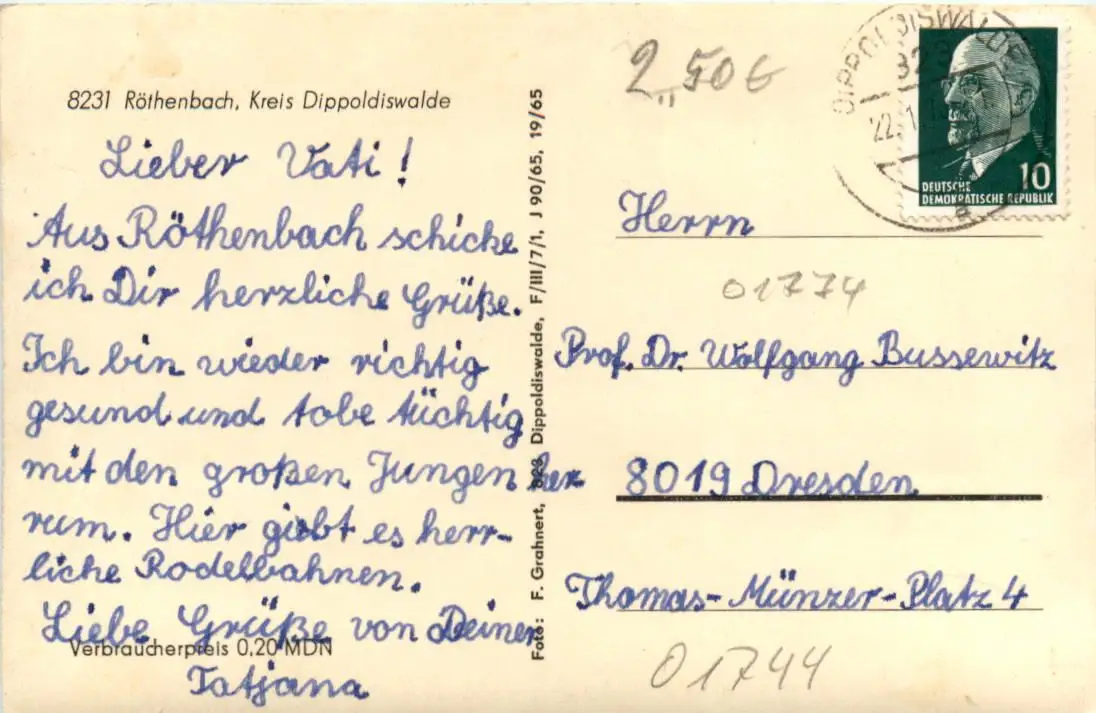 8231 Röthenbach, Kreis Dippoldiswalde
Lieber Vati!
Aus Röthenbach schicke
ich Dir herzliche Grüße.
Ich bin wieder richtig
gesund und tobe tüchtig
mit den großen Jungen her
rum. Hier giebt es herr-
liche Rodelbahnen.
Liebe Grüße von Deiner
Verbraucherpreis 0,20 MDN
Tatjana
Foto: F. Grahnert, 823 Dippoldiswalde, F/III/7/1, J 90/65, 19/65
2,50 €
DIPPOLDISWALDE
DEUTSCHE
DEMOKRATISCHE REPUBLIK
10
Herrn
01774
Prof. Dr. Wolfgang Bussewitz
8019 Dresden
Thomas-Münzer-Platz 4
01744